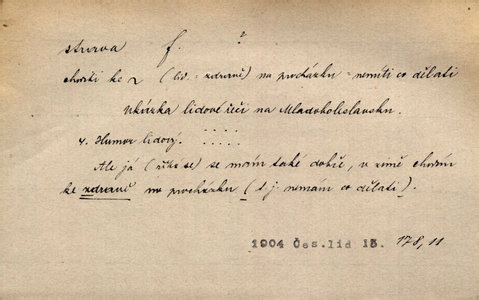 strova f. ?
choditi ke ~ (lid. zdrauě) na procházku = nemíti co dělati
Ukázka lidové řeči na Mladoboleslavsku.
4. Humor lidový. . . . . .
Ale já (říká se) se mám také dobře, v zimě chodím
ke zdrauě na procházku (t. j. nemám co dělati).
1904 Čes. lid 13. 178, 11